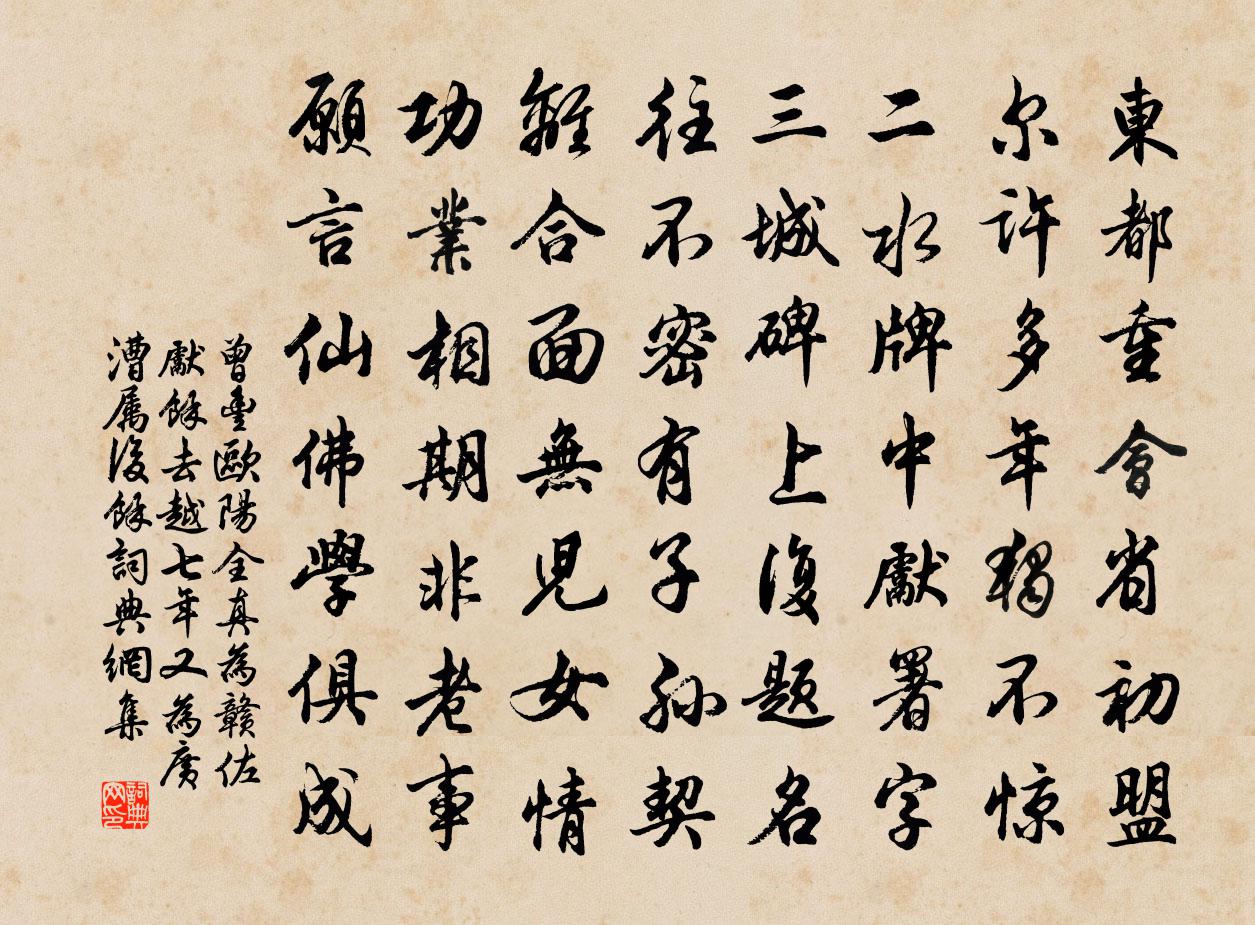 東都重會省初盟
尔許多年獨不惊
二水牌中獻署字
三城碑上復題名
往不密有子孫契
離合面無兒女情
功業相期非老事
願言仙佛學俱成
曾豐歐陽全真為贛佐
獻餘去越七年又為廣
漕屬復餘詞典網集
詞典网印